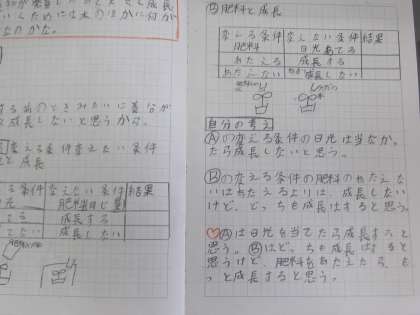 くためには水のほかに何が
なのかな。
る前のときみたいに養分が
成長しないと思うから。
変える条件変えない条件
と成長
える条件 変えない条件 結果
成長する
ない 成長しない
Ⓑ肥料と成長
変える条件 変えない条件 結果
肥料 日光あてる
あたえる 成長する
あたえない 成長しない
自分の考え
Ⓐの変える条件の日光は当なか。
たら成長しないと思う。
Ⓑの変える条件の肥料のあたえな
いはあたえるよりは、成長しない
けど、どっちも成長はすると思う。
♡Ⓐは日光を当てたら成長すると
思う。Ⓑはど、ちも成長はすると
思うけど、肥料をあたえたら、も
っと成長すると思う。